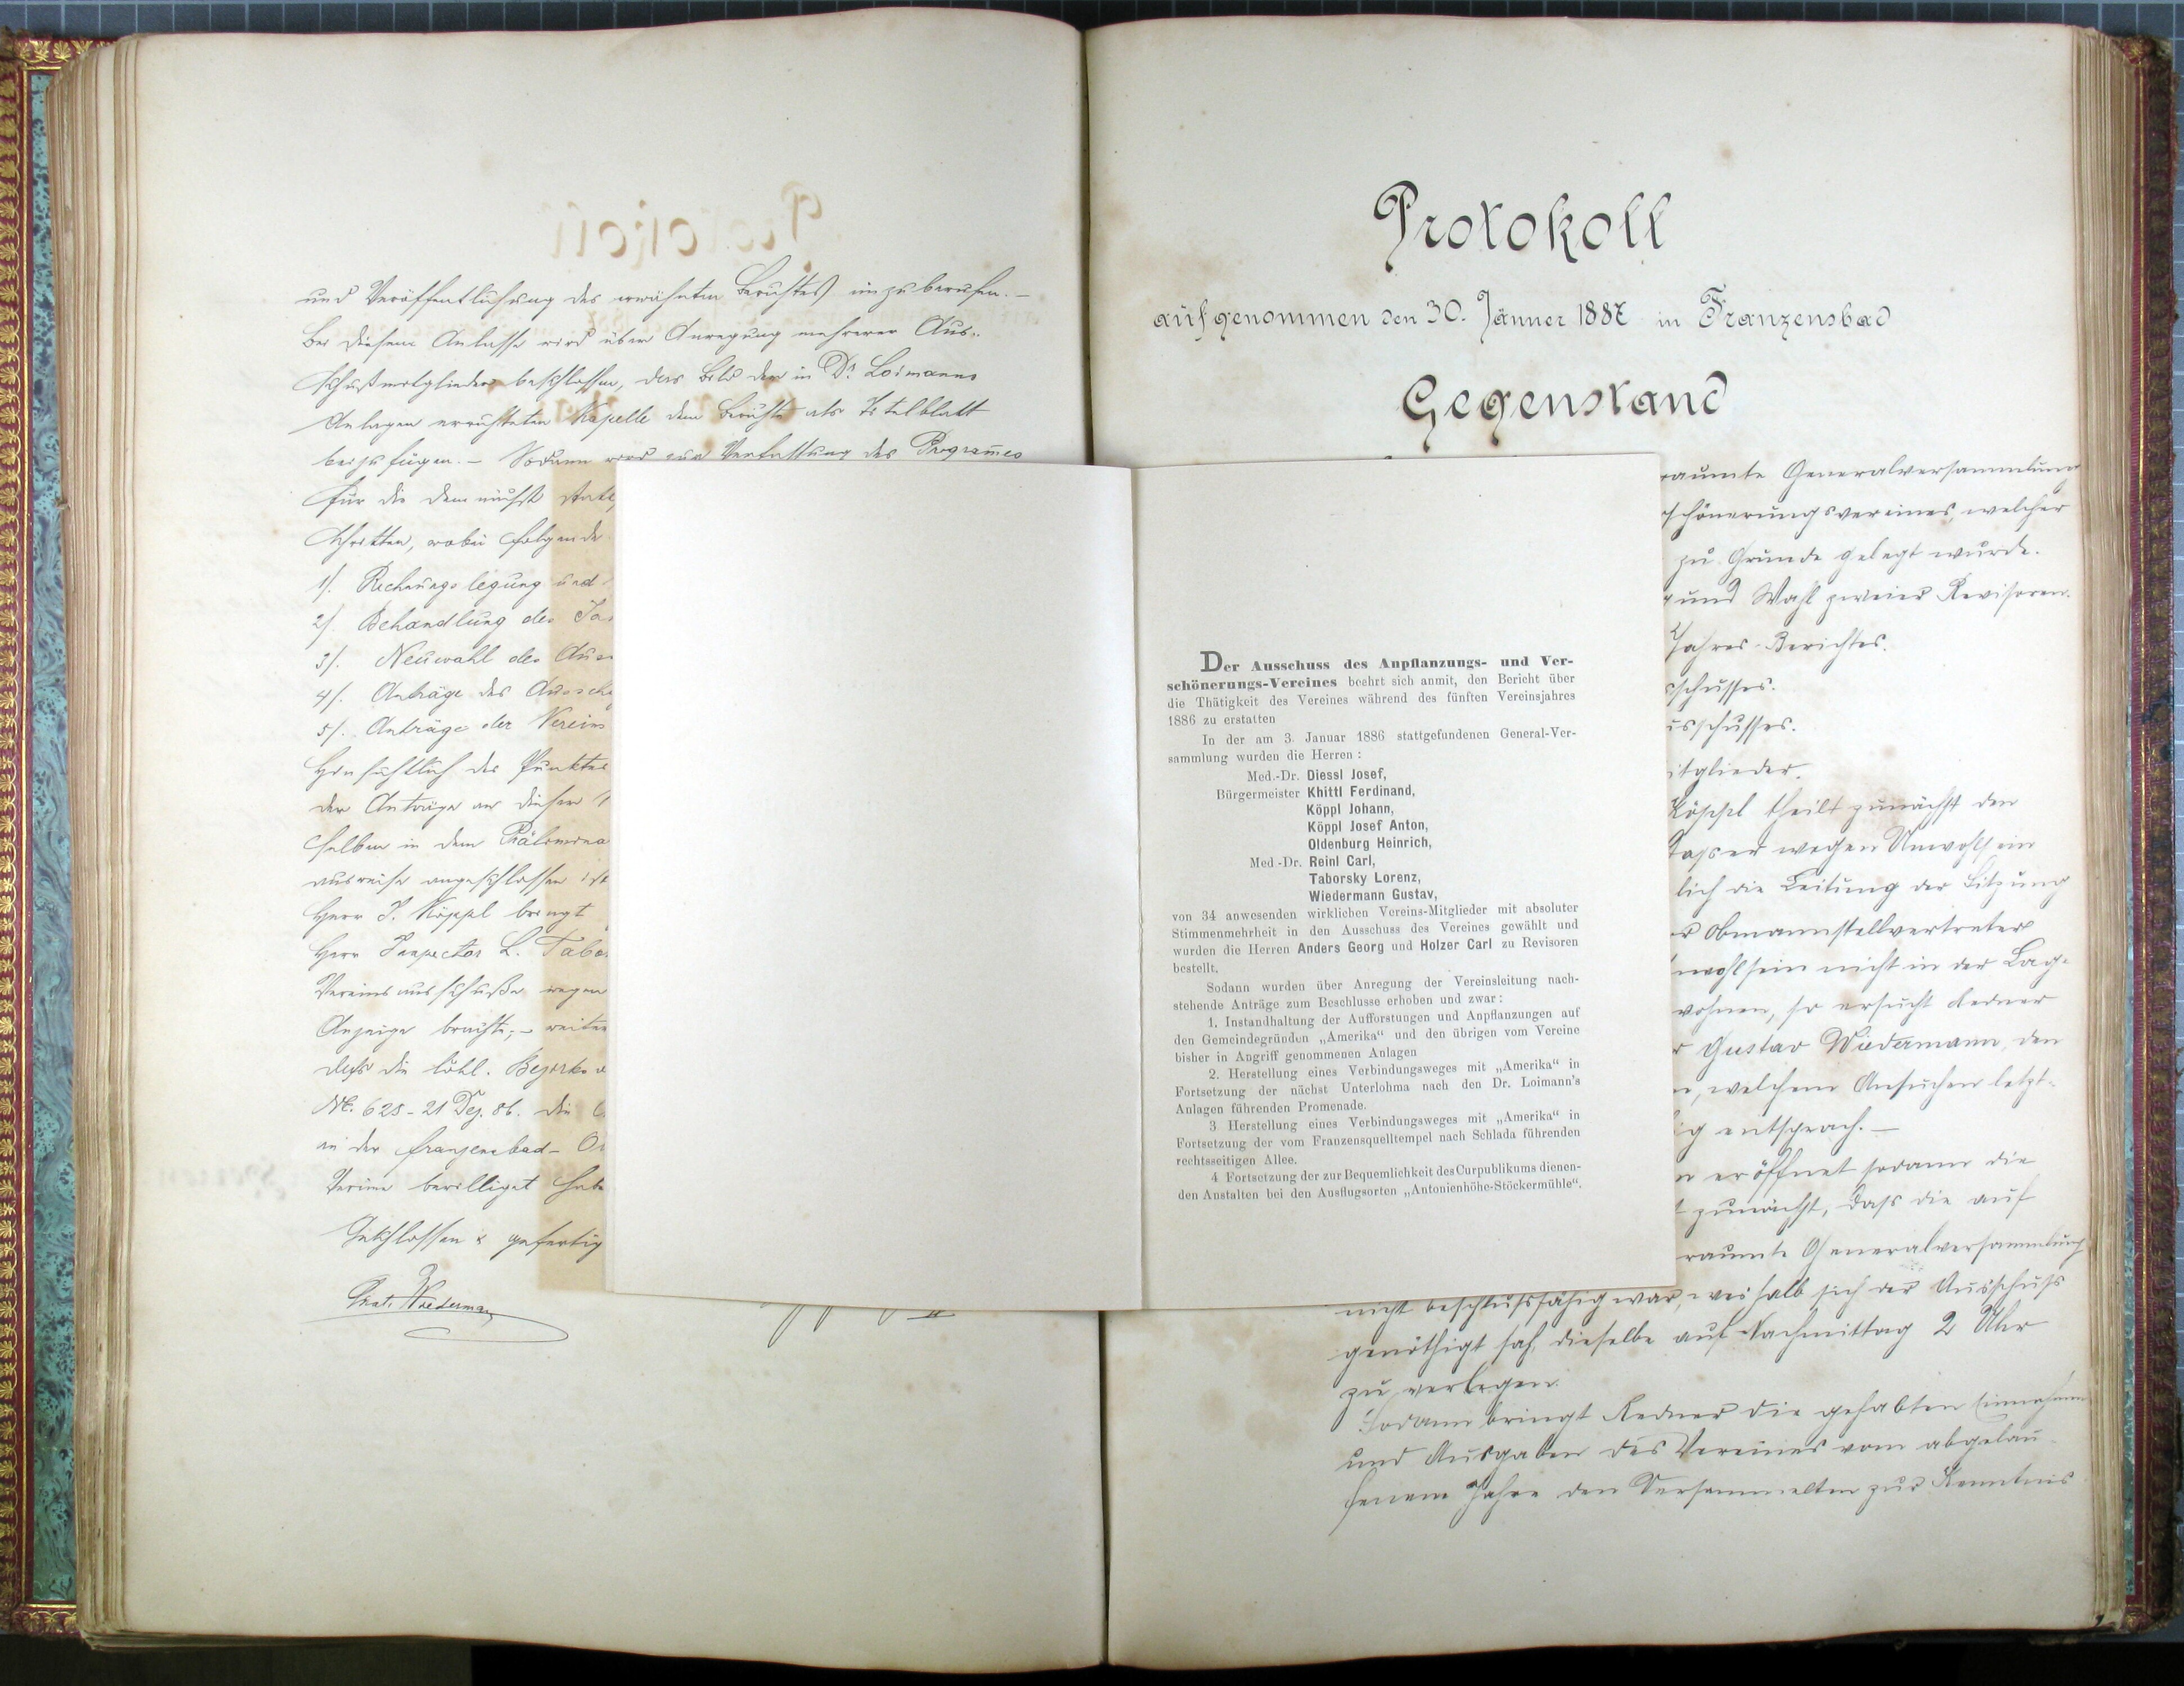 und Veröffentlichung des erwähnten Berichtes einzuberufen. –
Bei diesem Anlasse wird über Anregung mehrerer Aus-
schußmitglieder beschlossen, das Bild der in Dr. Loimanns
Anlagen errichteten Kapelle dem Berichte als Titelblatt
beizufügen. – Sodann wird zur Verfassung des Programmes
für die demnächst
schritten, wobei folgende
1/. Rechnungslegung und
2/. Behandlung des Ja
3/. Neuwahl des Aus
4/. Anträge des Aussch
5/. Anträge der Vereins
Hinsichtlich des Punktes
der Anträge an diesem
selben in dem Prälimina
ausweise angeschlossen ist
Herr J. Köppl bringt
Herr Inspector L. Tabo
Vereinsausschuße wegen
Anzeige brachte; – weiter
daß die löbl. Bezirks
Nr. 628 – 21 Dez. 86. die
an der Franzensbad –
Vereine bewilliget habe
Geschlossen & gefertig
Gust. Wiedermann
Protokoll
aufgenommen den 30. Jänner 1887 in Franzensbad
Gegenstand
raumte Generalversammlung
schönerungsvereines, welcher
zu Grunde gelegt wurde.
und Wahl zweier Revisoren.
Jahres-Berichtes.
sschusses.
usschusses.
itglieder.
Köppl theilt zunächst den
dass er wegen Unwohlsein
lich die Leitung der Sitzung
r Obmannstellvertreter
nwohlsein nicht in der Lage
wohnen, so ersucht Redner
r Gustav Wiedermann, den
n, welchem Ansuchen letzt-
ig entsprach. –
n eröffnet sodann die
t zunächst, dass die auf
raumte Generalversammlung
nicht beschlussfähig war, weshalb sich der Ausschuss
genöthigt sah, dieselbe auf Nachmittag 2 Uhr
zu verlegen.
Sodann bringt Redner die gehabten Einnahmen
und Ausgaben des Vereines vom abgelau-
fenen Jahre den Versammelten zur Kenntnis
Der Ausschuss des Anpflanzungs- und Ver-
schönerungs-Vereines beehrt sich anmit, den Bericht über
die Thätigkeit des Vereines während des fünften Vereinsjahres
1886 zu erstatten
In der am 3. Januar 1886 stattgefundenen General-Ver-
sammlung wurden die Herren :
Med.-Dr. Diessl Josef,
Bürgermeister Khittl Ferdinand,
Köppl Johann,
Köppl Josef Anton,
Oldenburg Heinrich,
Med.-Dr. Reinl Carl,
Taborsky Lorenz,
Wiedermann Gustav,
von 34 anwesenden wirklichen Vereins-Mitglieder mit absoluter
Stimmenmehrheit in den Ausschuss des Vereines gewählt und
wurden die Herren Anders Georg und Holzer Carl zu Revisoren
bestellt.
Sodann wurden über Anregung der Vereinsleitung nach-
stehende Anträge zum Beschlusse erhoben und zwar :
1. Instandhaltung der Aufforstungen und Anpflanzungen auf
den Gemeindegründen „Amerika“ und den übrigen vom Vereine
bisher in Angriff genommenen Anlagen
2. Herstellung eines Verbindungsweges mit „Amerika“ in
Fortsetzung der nächst Unterlohma nach den Dr. Loimann's
Anlagen führenden Promenade.
3 Herstellung eines Verbindungsweges mit „Amerika“ in
Fortsetzung der vom Franzensquelltempel nach Schlada führenden
rechtsseitigen Allee.
4 Fortsetzung der zur Bequemlichkeit des Curpublikums dienen-
den Anstalten bei den Ausflugsorten „Antonienhöhe-Stöckermühle“.